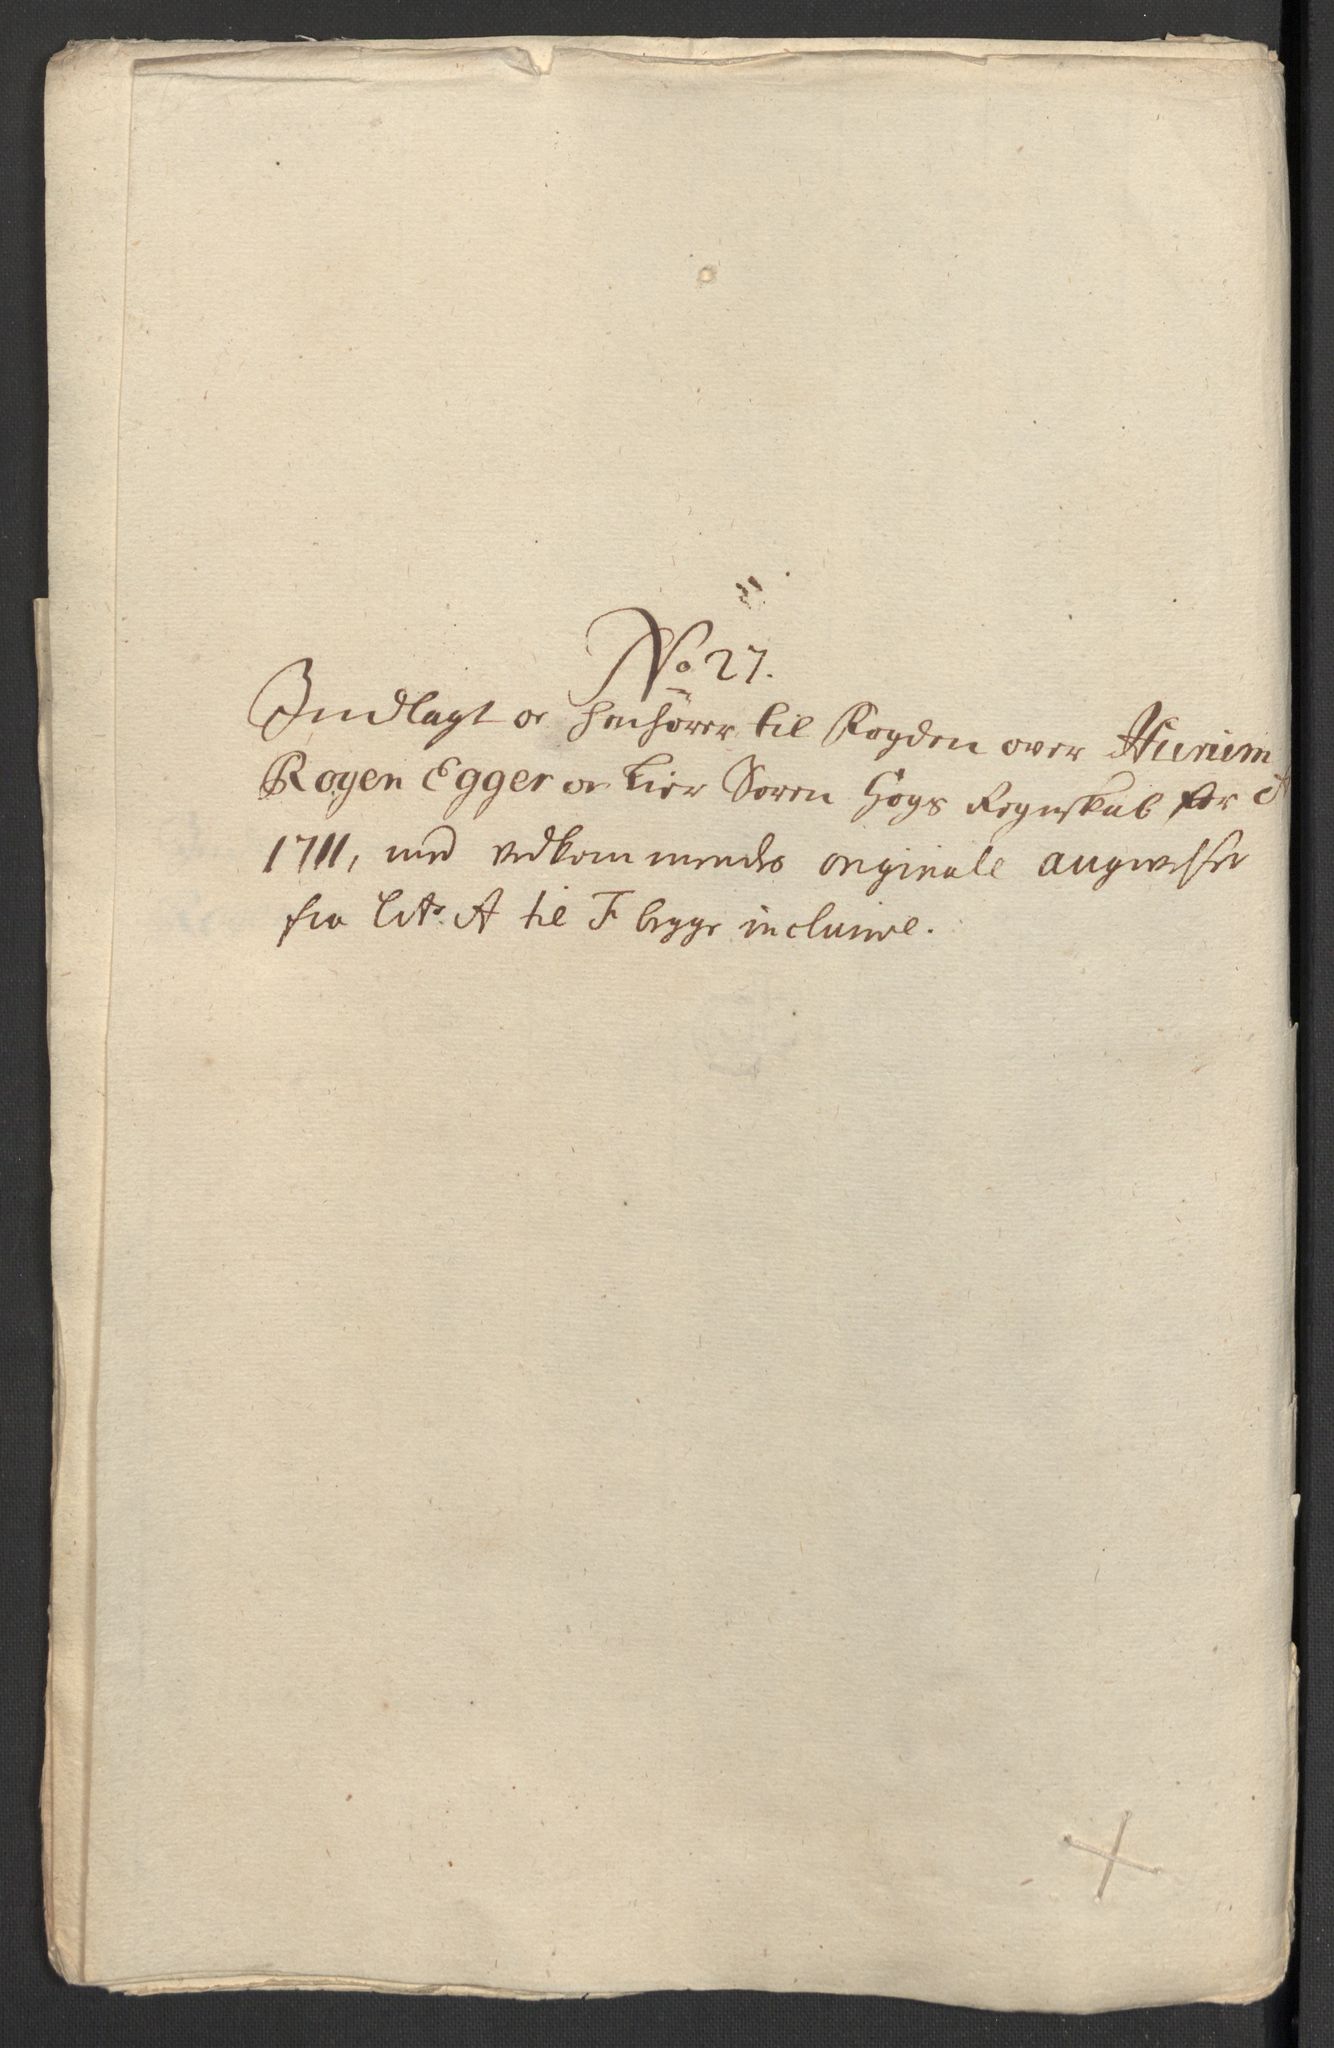 No 27.
Indlagt oc henhörer til Fogden over Hurum
Rogen Egger oc Lier Soren Högs Regnskab for Aº
1711, med vedkommendes originale angivelser
fra Litr. A til F begge inclusive.